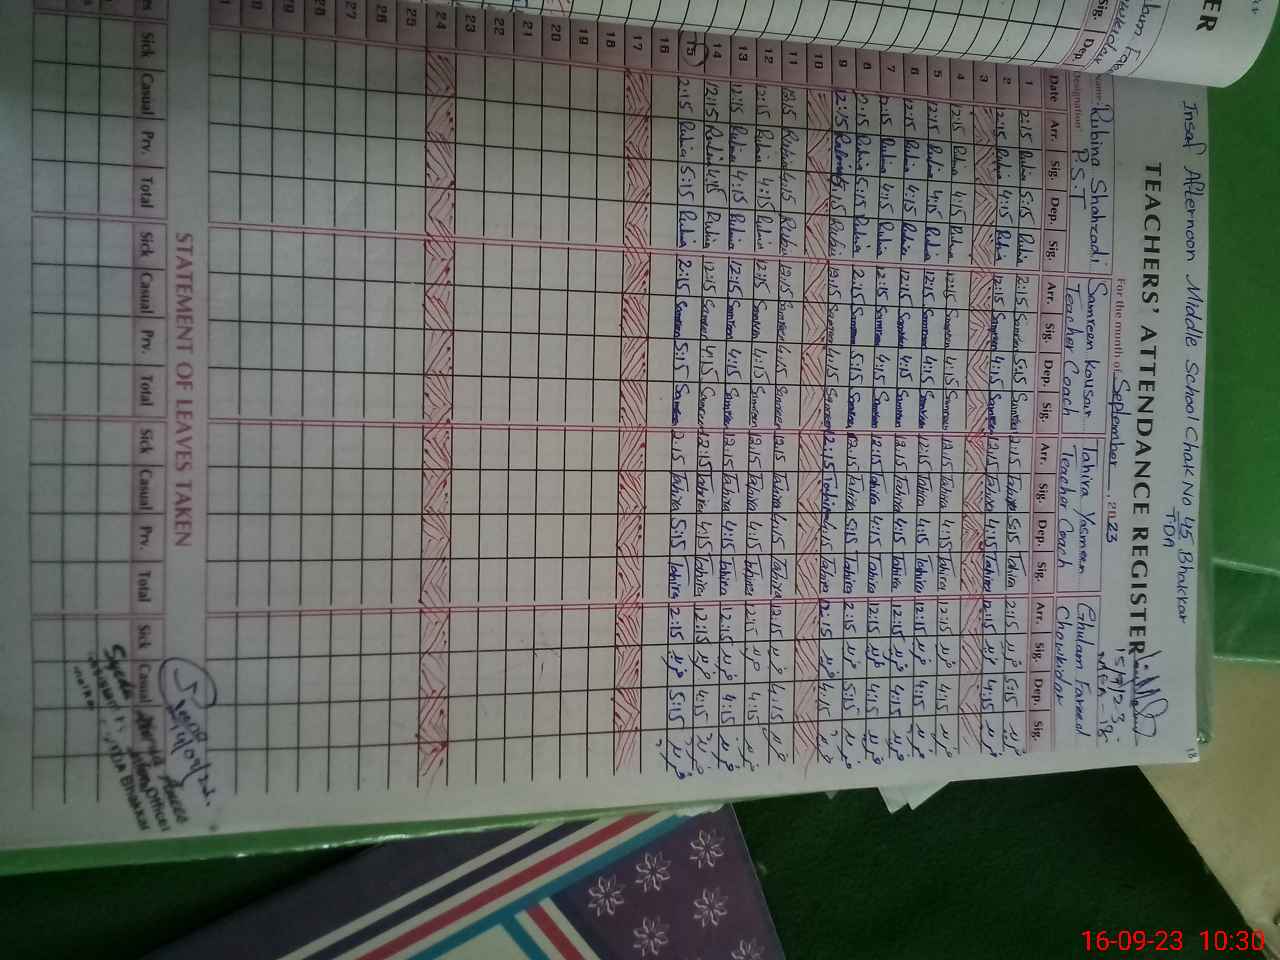 Insaf Afternoon Middle School Chak No 45 Bhakkar
TDA
18
TEACHERS' ATTENDANCE REGISTER
15/9/23
For the month of September, 2023
Name: Rubina Shahzadi Samreen Kousar Tahira Yasmeen Ghulam Fareed
Designation: P.S.T Teacher Coach Teacher Coach Chowkidar
Date Arr. Sig. Dep. Sig. Arr. Sig. Dep. Sig. Arr. Sig. Dep. Sig. Arr. Sig. Dep. Sig.
1 2:15 Rubina 5:15 Rubina 2:15 Samreen 5:15 Samreen 2:15 Tahira 5:15 Tahira 2:15 فرید 5:15 فرید
2 12:15 Rubina 4:15 Rubina 12:15 Samreen 4:15 Samreen 12:15 Tahira 4:15 Tahira 12:15 فرید 4:15 فرید
3
4 12:15 Rubina 4:15 Rubina 12:15 Samreen 4:15 Samreen 12:15 Tahira 4:15 Tahira 12:15 فرید 4:15 فرید
5 12:15 Rubina 4:15 Rubina 12:15 Samreen 4:15 Samreen 12:15 Tahira 4:15 Tahira 12:15 فرید 4:15 فرید
6 12:15 Rubina 4:15 Rubina 12:15 Samreen 4:15 Samreen 12:15 Tahira 4:15 Tahira 12:15 فرید 4:15 فرید
7 12:15 Rubina 4:15 Rubina 12:15 Samreen 4:15 Samreen 12:15 Tahira 4:15 Tahira 12:15 فرید 4:15 فرید
8 2:15 Rubina 5:15 Rubina 2:15 Samreen 5:15 Samreen 2:15 Tahira 5:15 Tahira 2:15 فرید 5:15 فرید
9 12:15 Rubina 4:15 Rubina 12:15 Samreen 4:15 Samreen 12:15 Tahira 4:15 Tahira 12:15 فرید 4:15 فرید
10
11 12:15 Rubina 4:15 Rubina 12:15 Samreen 4:15 Samreen 12:15 Tahira 4:15 Tahira 12:15 فرید 4:15 فرید
12 12:15 Rubina 4:15 Rubina 12:15 Samreen 4:15 Samreen 12:15 Tahira 4:15 Tahira 12:15 فرید 4:15 فرید
13 12:15 Rubina 4:15 Rubina 12:15 Samreen 4:15 Samreen 12:15 Tahira 4:15 Tahira 12:15 فرید 4:15 فرید
14 12:15 Rubina 4:15 Rubina 12:15 Samreen 4:15 Samreen 12:15 Tahira 4:15 Tahira 12:15 فرید 4:15 فرید
15 2:15 Rubina 5:15 Rubina 2:15 Samreen 5:15 Samreen 2:15 Tahira 5:15 Tahira 2:15 فرید 5:15 فرید
16
17
18
19
20
21
22
23
24
25
26
27
28
29
STATEMENT OF LEAVES TAKEN
Sick Casual Prv. Total Sick Casual Prv. Total Sick Casual Prv. Total Sick Casual
Syeda
Officer
Bhakkar
ER
Sig. Dep.
16-09-23 10:30